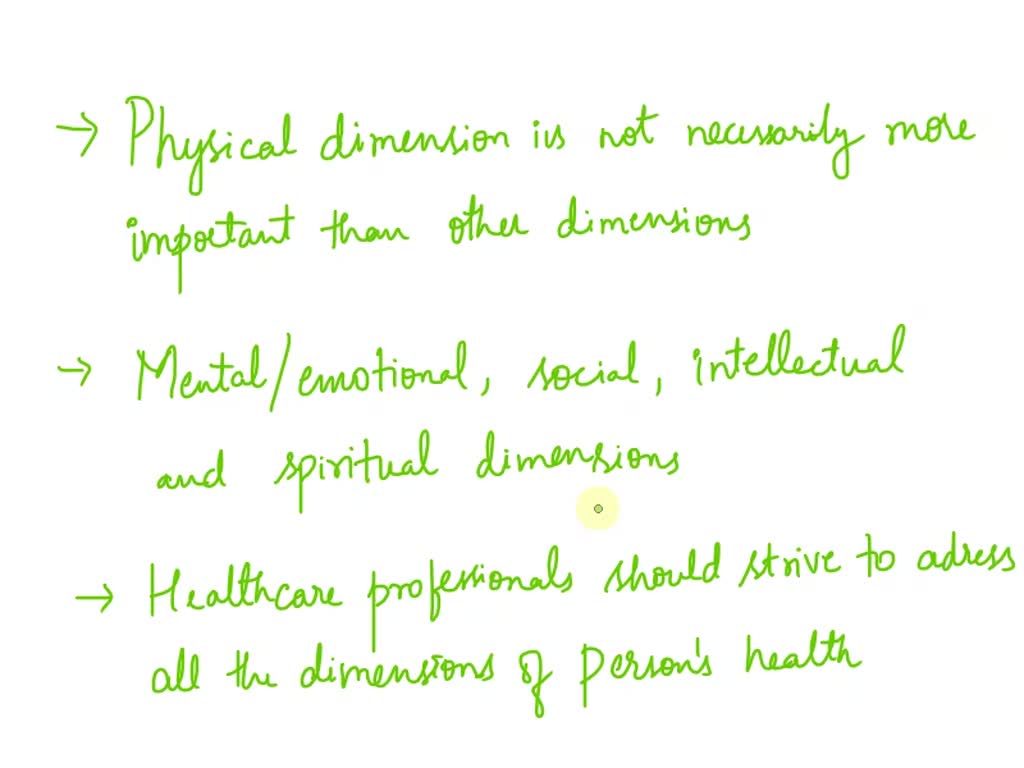 → Physical dimension is not necessarily more
important than other dimensions
→ Mental/emotional, social, intellectual
and spiritual dimensions
→ Healthcare professionals should strive to adress
all the dimensions of person's health